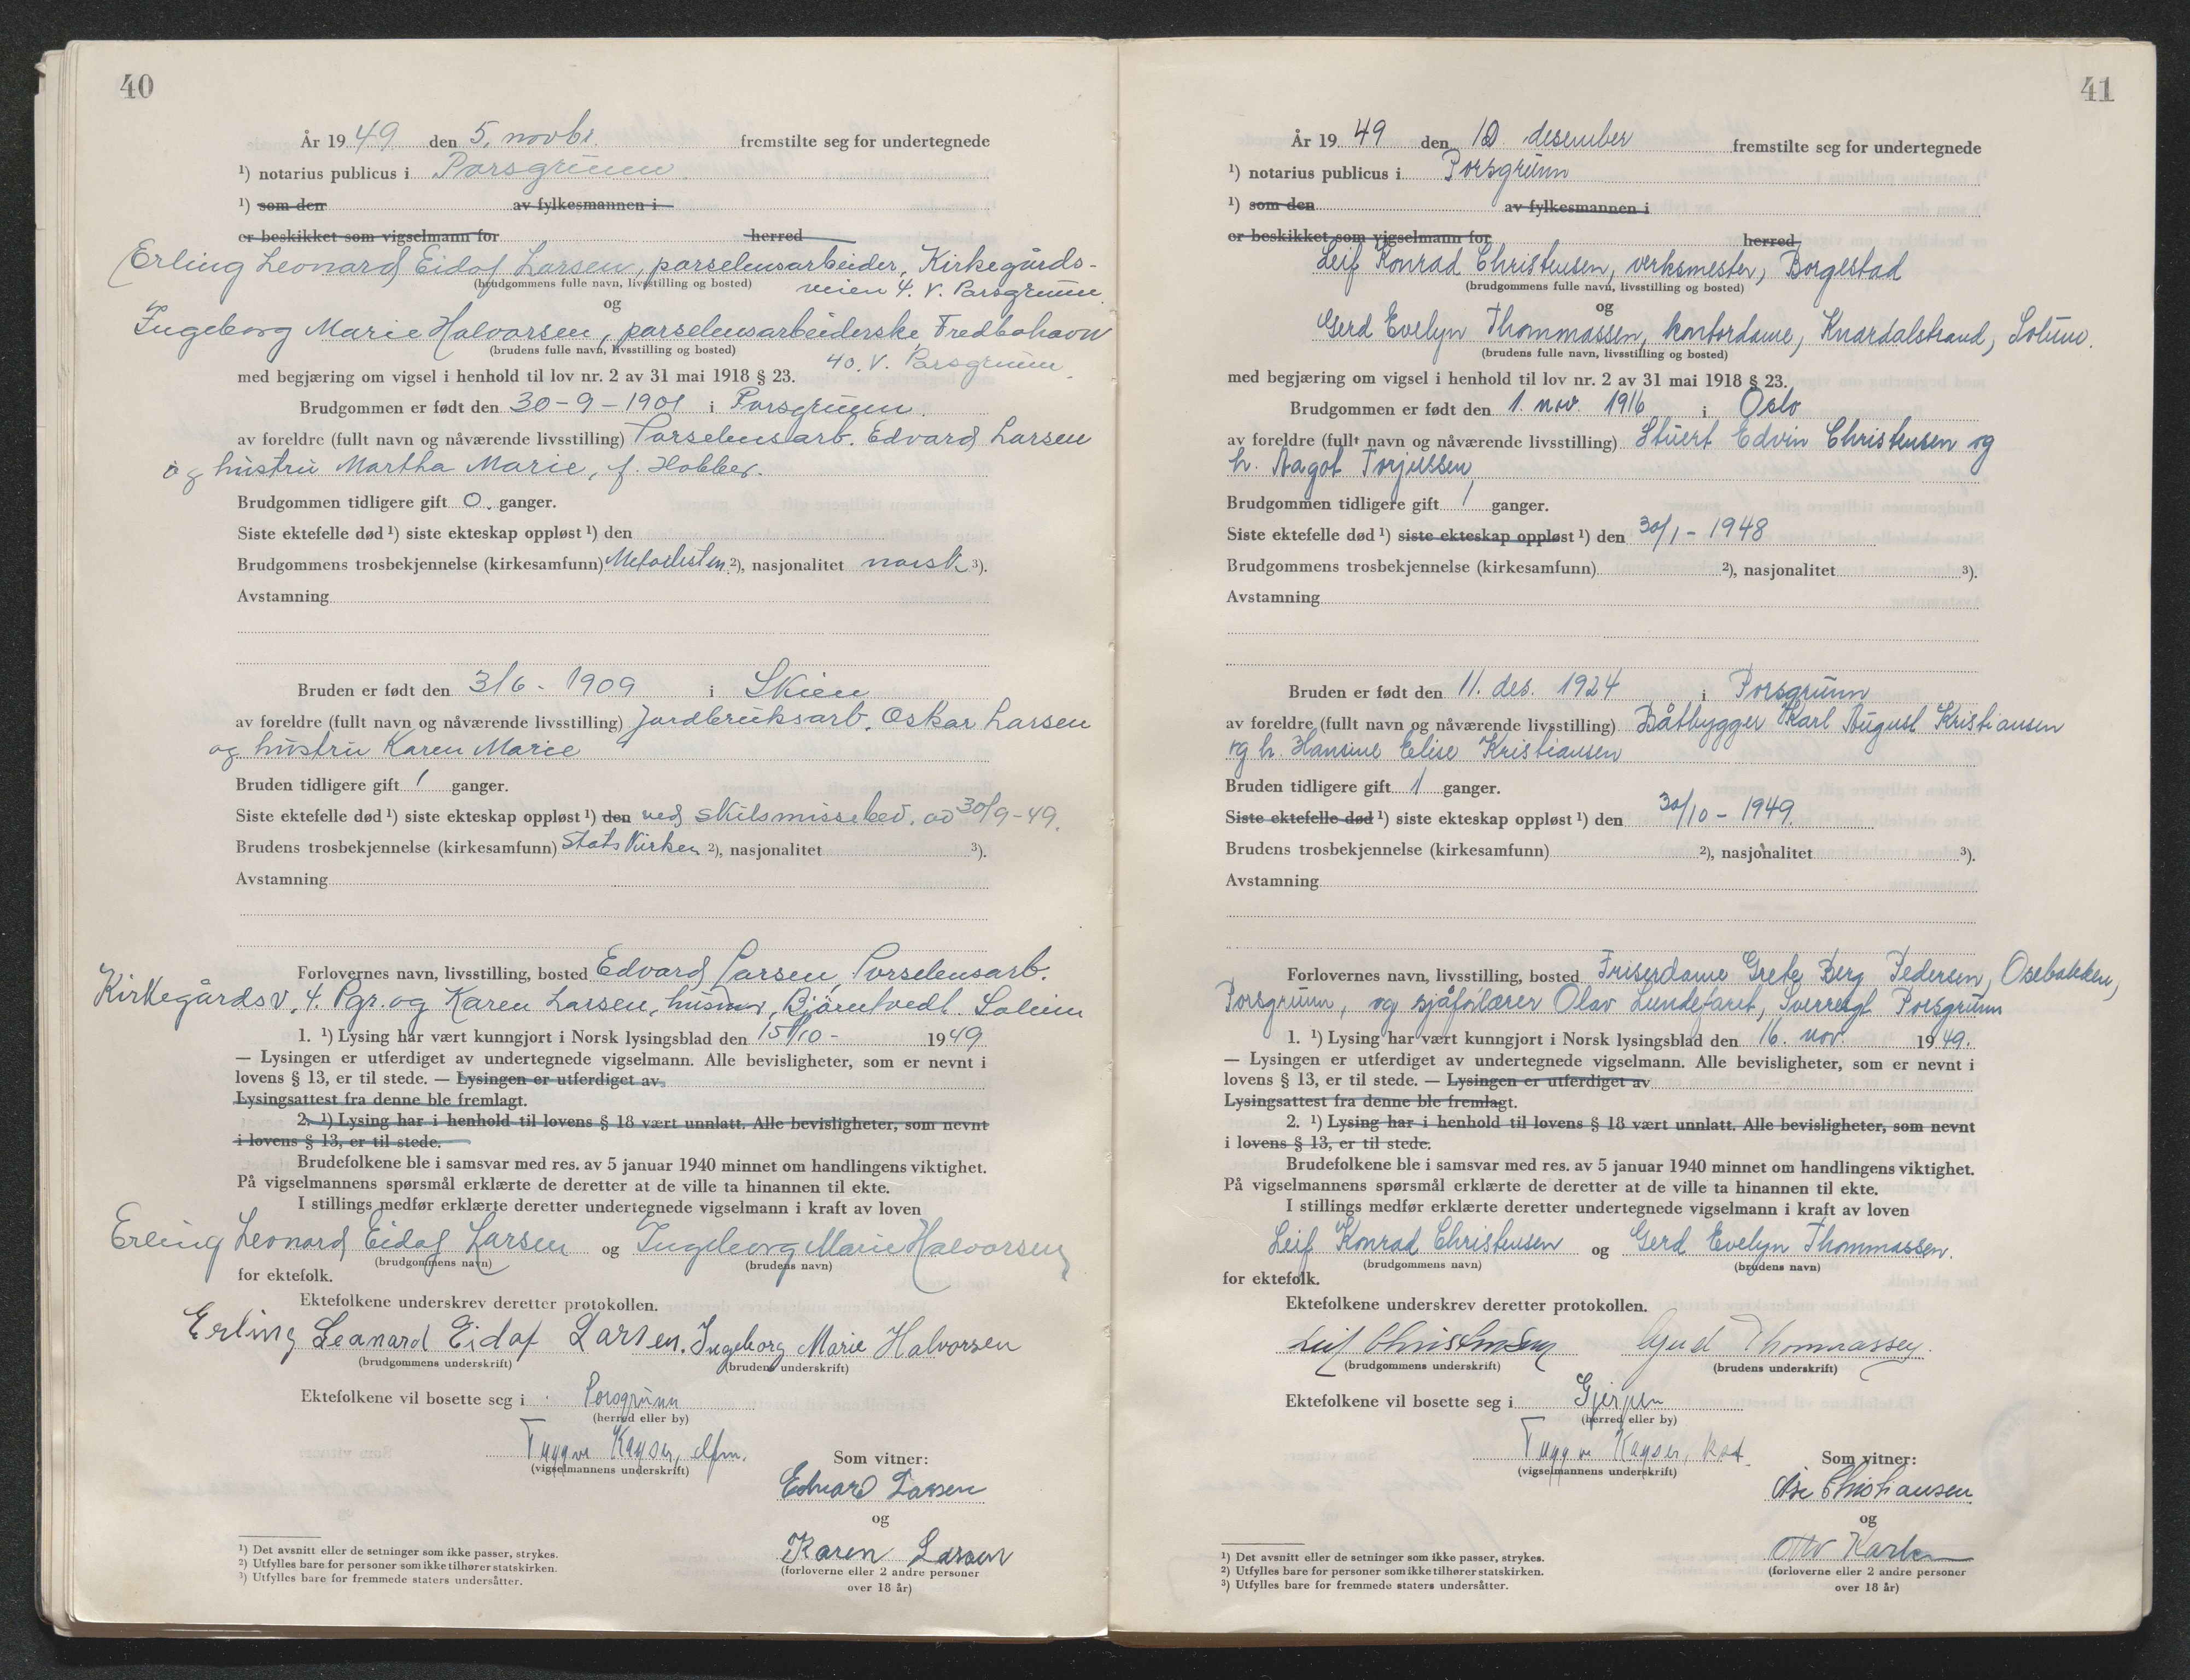 40
År 1949 den 5. novbr. fremstilte seg for undertegnede
¹) notarius publicus i Porsgrunn
¹) som den av fylkesmannen i
er beskikket som vigselmann for herred
Erling Leonard Eidof Larsen, porselensarbeider, Kirkegårds-
(brudgommens fulle navn, livsstilling og bosted) veien 4. V. Porsgrunn
og
Ingeborg Marie Halvorsen, porselensarbeiderske, Fredbohavn
(brudens fulle navn, livsstilling og bosted) 40. V. Porsgrunn.
med begjæring om vigsel i henhold til lov nr. 2 av 31 mai 1918 § 23.
Brudgommen er født den 30-9-1901 i Porsgrunn.
av foreldre (fullt navn og nåværende livsstilling) Porselensarb. Edvard Larsen
og hustru Martha Marie, f.
Brudgommen tidligere gift 0. ganger.
Siste ektefelle død ¹) siste ekteskap oppløst ¹) den
Brudgommens trosbekjennelse (kirkesamfunn) ²), nasjonalitet norsk ³).
Avstamning
Bruden er født den 3/6 - 1909 i Skien
av foreldre (fullt navn og nåværende livsstilling) Jordbruksarb. Oskar Larsen
og hustru Karen Marie
Bruden tidligere gift 1 ganger.
Siste ektefelle død ¹) siste ekteskap oppløst ¹) den ved skilsmissebev. av 30/9-49.
Brudens trosbekjennelse (kirkesamfunn) Statskirken ²), nasjonalitet ³).
Avstamning
Forlovernes navn, livsstilling, bosted Edvard Larsen, Porselensarb.
Kirkegårdsv. 4. Pgr. og Karen Larsen, husmor, Bjørntvedt. Solum
1. ¹) Lysing har vært kunngjort i Norsk lysingsblad den 15/10 - 1949
— Lysingen er utferdiget av undertegnede vigselmann. Alle bevisligheter, som er nevnt i
lovens § 13, er til stede. — Lysingen er utferdiget av
Lysingsattest fra denne ble fremlagt.
2. ¹) Lysing har i henhold til lovens § 18 vært unnlatt. Alle bevisligheter, som nevnt
i lovens § 13, er til stede.
Brudefolkene ble i samsvar med res. av 5 januar 1940 minnet om handlingens viktighet.
På vigselmannens spørsmål erklærte de deretter at de ville ta hinannen til ekte.
I stillings medfør erklærte deretter undertegnede vigselmann i kraft av loven
Erling Leonard Eidof Larsen og Ingeborg Marie Halvorsen
(brudgommens navn) (brudens navn)
for ektefolk.
Ektefolkene underskrev deretter protokollen.
Erling Leonard Eidof Larsen. Ingeborg Marie Halvorsen
(brudgommens underskrift) (brudens underskrift)
Ektefolkene vil bosette seg i Porsgrunn
(herred eller by)
Tryggve Kayser, dfm.
(vigselmannens underskrift) Som vitner:
Edvard Larsen
og
Karen Larsen
(forloverne eller 2 andre personer
over 18 år)
¹) Det avsnitt eller de setninger som ikke passer, strykes.
²) Utfylles bare for personer som ikke tilhører statskirken.
³) Utfylles bare for fremmede staters undersåtter.
41
År 1949 den 10. desember fremstilte seg for undertegnede
¹) notarius publicus i Porsgrunn
¹) som den av fylkesmannen i
er beskikket som vigselmann for herred
Leif Konrad Christensen, verksmester, Borgestad
(brudgommens fulle navn, livsstilling og bosted)
og
Gerd Evelyn Thommassen, kontordame, Knardalstrand, Solum.
(brudens fulle navn, livsstilling og bosted)
med begjæring om vigsel i henhold til lov nr. 2 av 31 mai 1918 § 23.
Brudgommen er født den 1. nov. 1916 i Oslo
av foreldre (fullt navn og nåværende livsstilling) Stuert Edvin Christensen og
h. Aagot Torjussen
Brudgommen tidligere gift 1 ganger.
Siste ektefelle død ¹) siste ekteskap oppløst ¹) den 30/1 - 1948
Brudgommens trosbekjennelse (kirkesamfunn) ²), nasjonalitet ³).
Avstamning
Bruden er født den 11. des. 1924 i Porsgrunn
av foreldre (fullt navn og nåværende livsstilling) Båtbygger Karl August Kristiansen
og h. Hansine Elise Kristiansen
Bruden tidligere gift 1 ganger.
Siste ektefelle død ¹) siste ekteskap oppløst ¹) den 30/10 - 1949.
Brudens trosbekjennelse (kirkesamfunn) ²), nasjonalitet ³).
Avstamning
Forlovernes navn, livsstilling, bosted Friserdame Grete Berg Pedersen, Osebakken,
Porsgrunn, og sjåførlærer Olav Lundefaret, Sverresgt. Porsgrunn
1. ¹) Lysing har vært kunngjort i Norsk lysingsblad den 16. nov. 1949.
— Lysingen er utferdiget av undertegnede vigselmann. Alle bevisligheter, som er nevnt i
lovens § 13, er til stede. — Lysingen er utferdiget av
Lysingsattest fra denne ble fremlagt.
2. ¹) Lysing har i henhold til lovens § 18 vært unnlatt. Alle bevisligheter, som nevnt
i lovens § 13, er til stede.
Brudefolkene ble i samsvar med res. av 5 januar 1940 minnet om handlingens viktighet.
På vigselmannens spørsmål erklærte de deretter at de ville ta hinannen til ekte.
I stillings medfør erklærte deretter undertegnede vigselmann i kraft av loven
Leif Konrad Christensen og Gerd Evelyn Thommassen.
(brudgommens navn) (brudens navn)
for ektefolk.
Ektefolkene underskrev deretter protokollen.
Leif Christensen Gerd Thommassen.
(brudgommens underskrift) (brudens underskrift)
Ektefolkene vil bosette seg i Gjerpen
(herred eller by)
Tryggve Kayser,
(vigselmannens underskrift) Som vitner:
Christiansen
og
Otto
(forloverne eller 2 andre personer
over 18 år)
¹) Det avsnitt eller de setninger som ikke passer, strykes.
²) Utfylles bare for personer som ikke tilhører statskirken.
³) Utfylles bare for fremmede staters undersåtter.